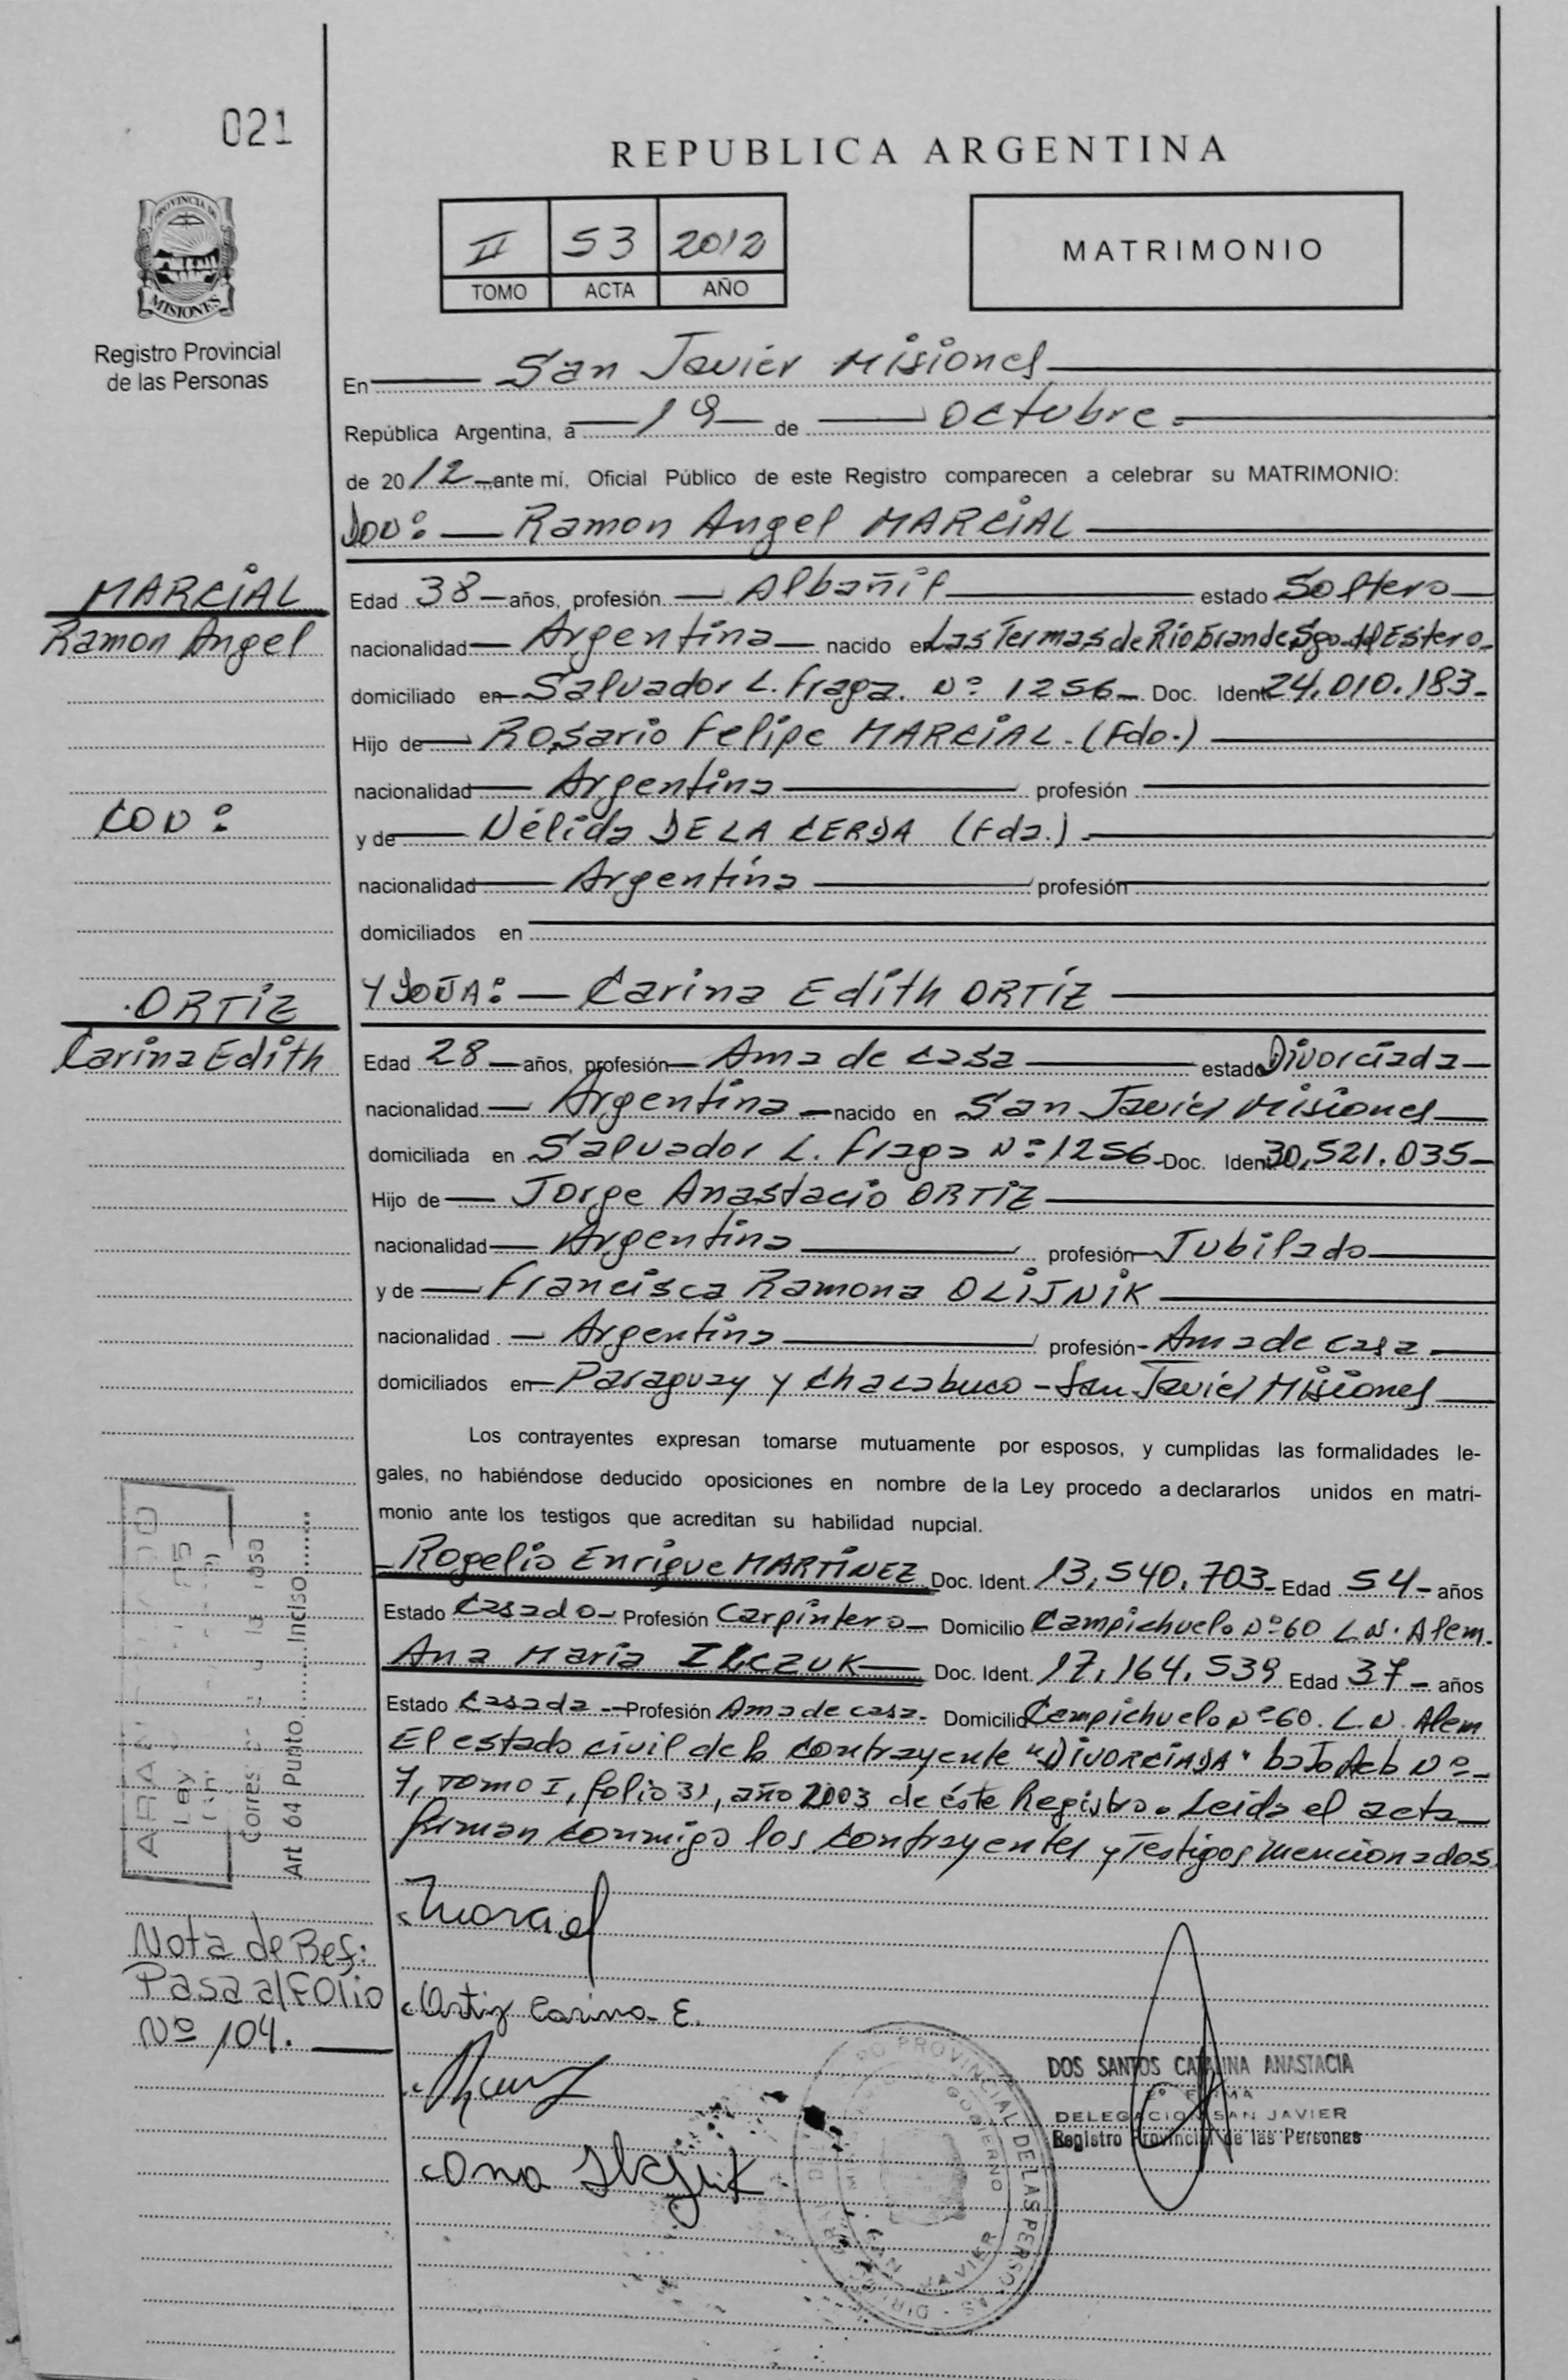 021
REPUBLICA ARGENTINA
PROVINCIA DE
MISIONES
Registro Provincial
de las Personas
II 53 2012
TOMO ACTA AÑO
MATRIMONIO
En San Javier Misiones
República Argentina, a 19 de octubre
de 2012 ante mí, Oficial Público de este Registro comparecen a celebrar su MATRIMONIO:
DON: Ramon Angel MARCIAL
MARCIAL
Ramon Angel
Edad 38 años, profesión Albañil estado Soltero
nacionalidad Argentina nacido en Las Termas de Rio Grande Sgo. del Estero
domiciliado en Salvador L. Fraga. Nº 1256 Doc. Ident. 24.010.183
Hijo de Rosario Felipe MARCIAL. (Fdo.)
nacionalidad Argentina profesión
CON:
y de Nélida DE LA CERDA (Fda.)
nacionalidad Argentina profesión
domiciliados en
Y DOÑA: Carina Edith ORTIZ
ORTIZ
Carina Edith
Edad 28 años, profesión Ama de casa estado Divorciada
nacionalidad Argentina nacido en San Javier Misiones
domiciliada en Salvador L. Fraga Nº 1256 Doc. Ident. 30.521.035
Hijo de Jorge Anastacio ORTIZ
nacionalidad Argentina profesión Jubilado
y de Francisca Ramona OLIJNIK
nacionalidad Argentina profesión Ama de casa
domiciliados en Paraguay y Chacabuco - San Javier Misiones
Los contrayentes expresan tomarse mutuamente por esposos, y cumplidas las formalidades le-
gales, no habiéndose deducido oposiciones en nombre de la Ley procedo a declararlos unidos en matri-
monio ante los testigos que acreditan su habilidad nupcial.
Rogelio Enrique MARTINEZ Doc. Ident. 13.540.703 Edad 54 años
Estado Casado Profesión Carpintero Domicilio Campichuelo Nº 60 L.N. Alem.
Ana Maria ILCZUK Doc. Ident. 17.164.539 Edad 37 años
Estado Casada Profesión Ama de casa. Domicilio Campichuelo Nº 60. L.N. Alem
El estado civil de la contrayente "DIVORCIADA" bajo Acta Nº
7, Tomo I, folio 31, año 2003 de éste Registro. Leida el acta
firman conmigo los contrayentes y Testigos mencionados
Ley
Corres
Art 64 Punto Inciso
Nota de Ref:
Pasa al Folio
Nº 104.
Ortiz Carina E.
Ana
DOS SANTOS CATALINA ANASTACIA
DELEGACION SAN JAVIER
Registro Provincial de las Personas
PROVINCIAL DE LAS PERSONAS
GOBIERNO
SAN JAVIER